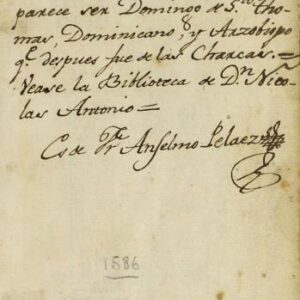 parece ser Domingo de S.to Tho-
mas, Dominicano, y Arzobispo
q.e despues fue de las Charcas.=
Vease la Biblioteca de D.n Nico-
las Antonio=
Es de Fr. Anselmo Pelaez
1586